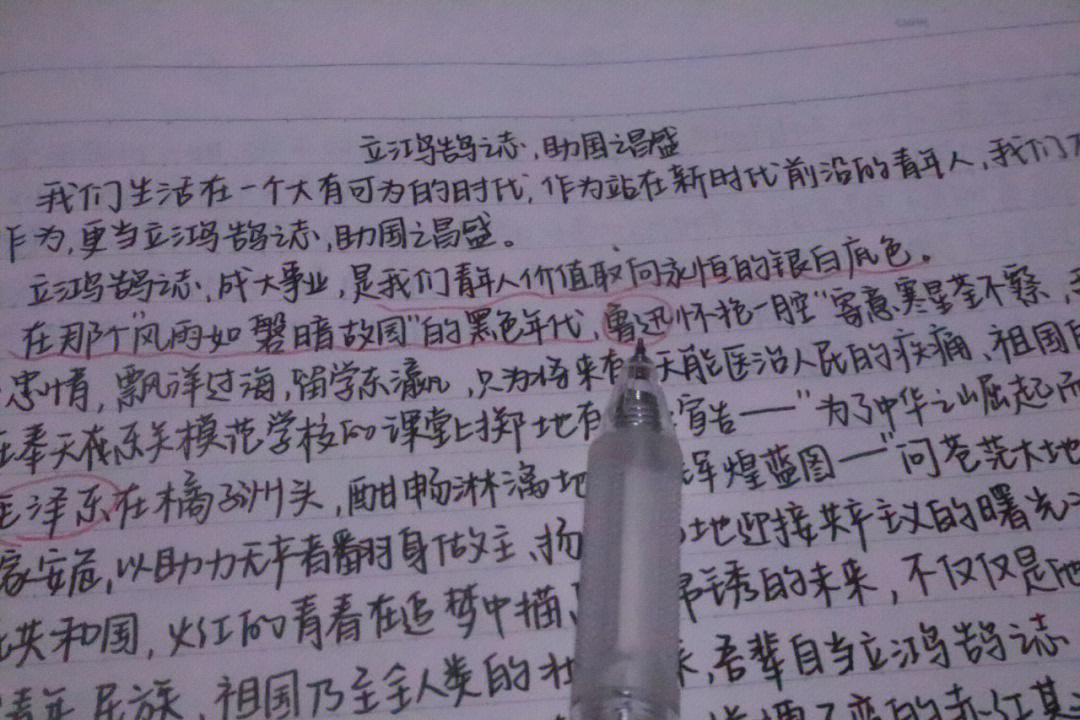 立鸿鹄之志，助国之昌盛
我们生活在一个大有可为的时代，作为站在新时代前沿的青年人，我们
作为，更当立鸿鹄之志，助国之昌盛。
立鸿鹄之志，成大事业，是我们青年人价值取向永恒的银白底色。
在那个“风雨如磐暗故园”的黑色年代，鲁迅怀抱一腔“寄意寒星荃不察，
忠情，飘洋过海，留学东瀛，只为将来有 天能医治人民的疾痛、祖国
在奉天 东关模范学校的课堂上掷地有 宣告——“为了中华之崛起而
毛泽东在橘子洲头，酣畅淋漓地 辉煌蓝图—“问苍茫大地
家安危，以助力无产者翻身做主、扬 地迎接共产主义的曙光
共和国，火红的青春在追梦中描 锦绣的未来，不仅仅是他
青年，民族，祖国乃至全人类的 ，吾辈自当立鸿鹄之志